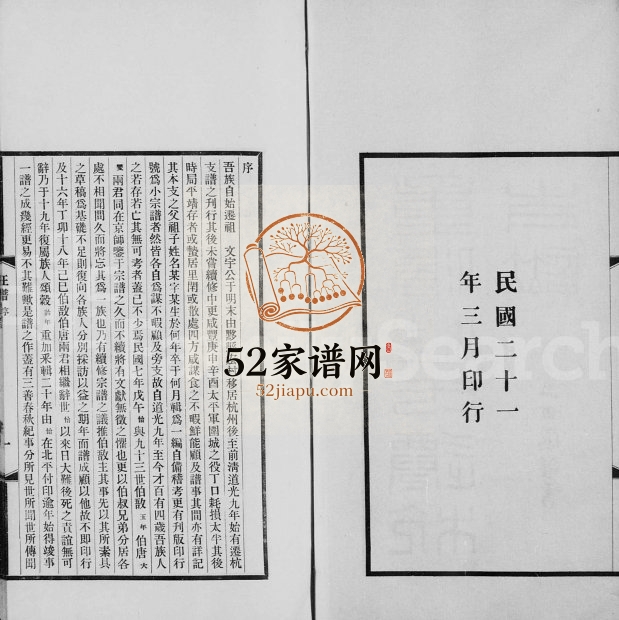 民國二十一
年三月印行
序
吾族自始遷祖 文宇公于明末由黟
移居杭州後至前清道光九年始有遷杭
支譜之刊行其後未嘗續修中更咸豐庚申辛酉太平軍圍城之役丁口耗損太半其後
時局平靖存者或蟄居里閈或散處四方咸謀食之不暇鮮能顧及譜事其間亦有詳記
其本支之父祖子姓名某字某生於何年卒于何月輯爲一編自備稽考更有刊版印行
號爲小宗譜者然皆各自爲謀不暇顧及旁支故自道光九年至今才百有四歲吾族人
之若存若亡其無可考者蓋已不少焉民國七年戊午 怡 與九十三世伯敔 玉年 伯唐 大
燮 兩君同在京師鑒于宗譜之久而不續將有文獻無徵之懼也更以伯叔兄弟分居各
處不相聞問久而將忘其爲一族也乃有續修宗譜之議推伯敔主其事先以其所素具
之草稿爲基礎不足則復向各族人分別採訪以益之期年而譜成顧以他故不即印行
及十六年丁卯十八年己巳伯敔伯唐兩君相繼辭世 怡 以來日大難後死之責誼無可
辭乃于十九年復屬族人頌穀 詒年 重加釆輯二十年由 怡 在北平付印逾年始得竣事
一譜之成幾經更易不其難歟是譜之作蓋有三善春秋紀事分所見世所聞世所傳聞
汪譜 序
一
52家谱网
52jiapu.com